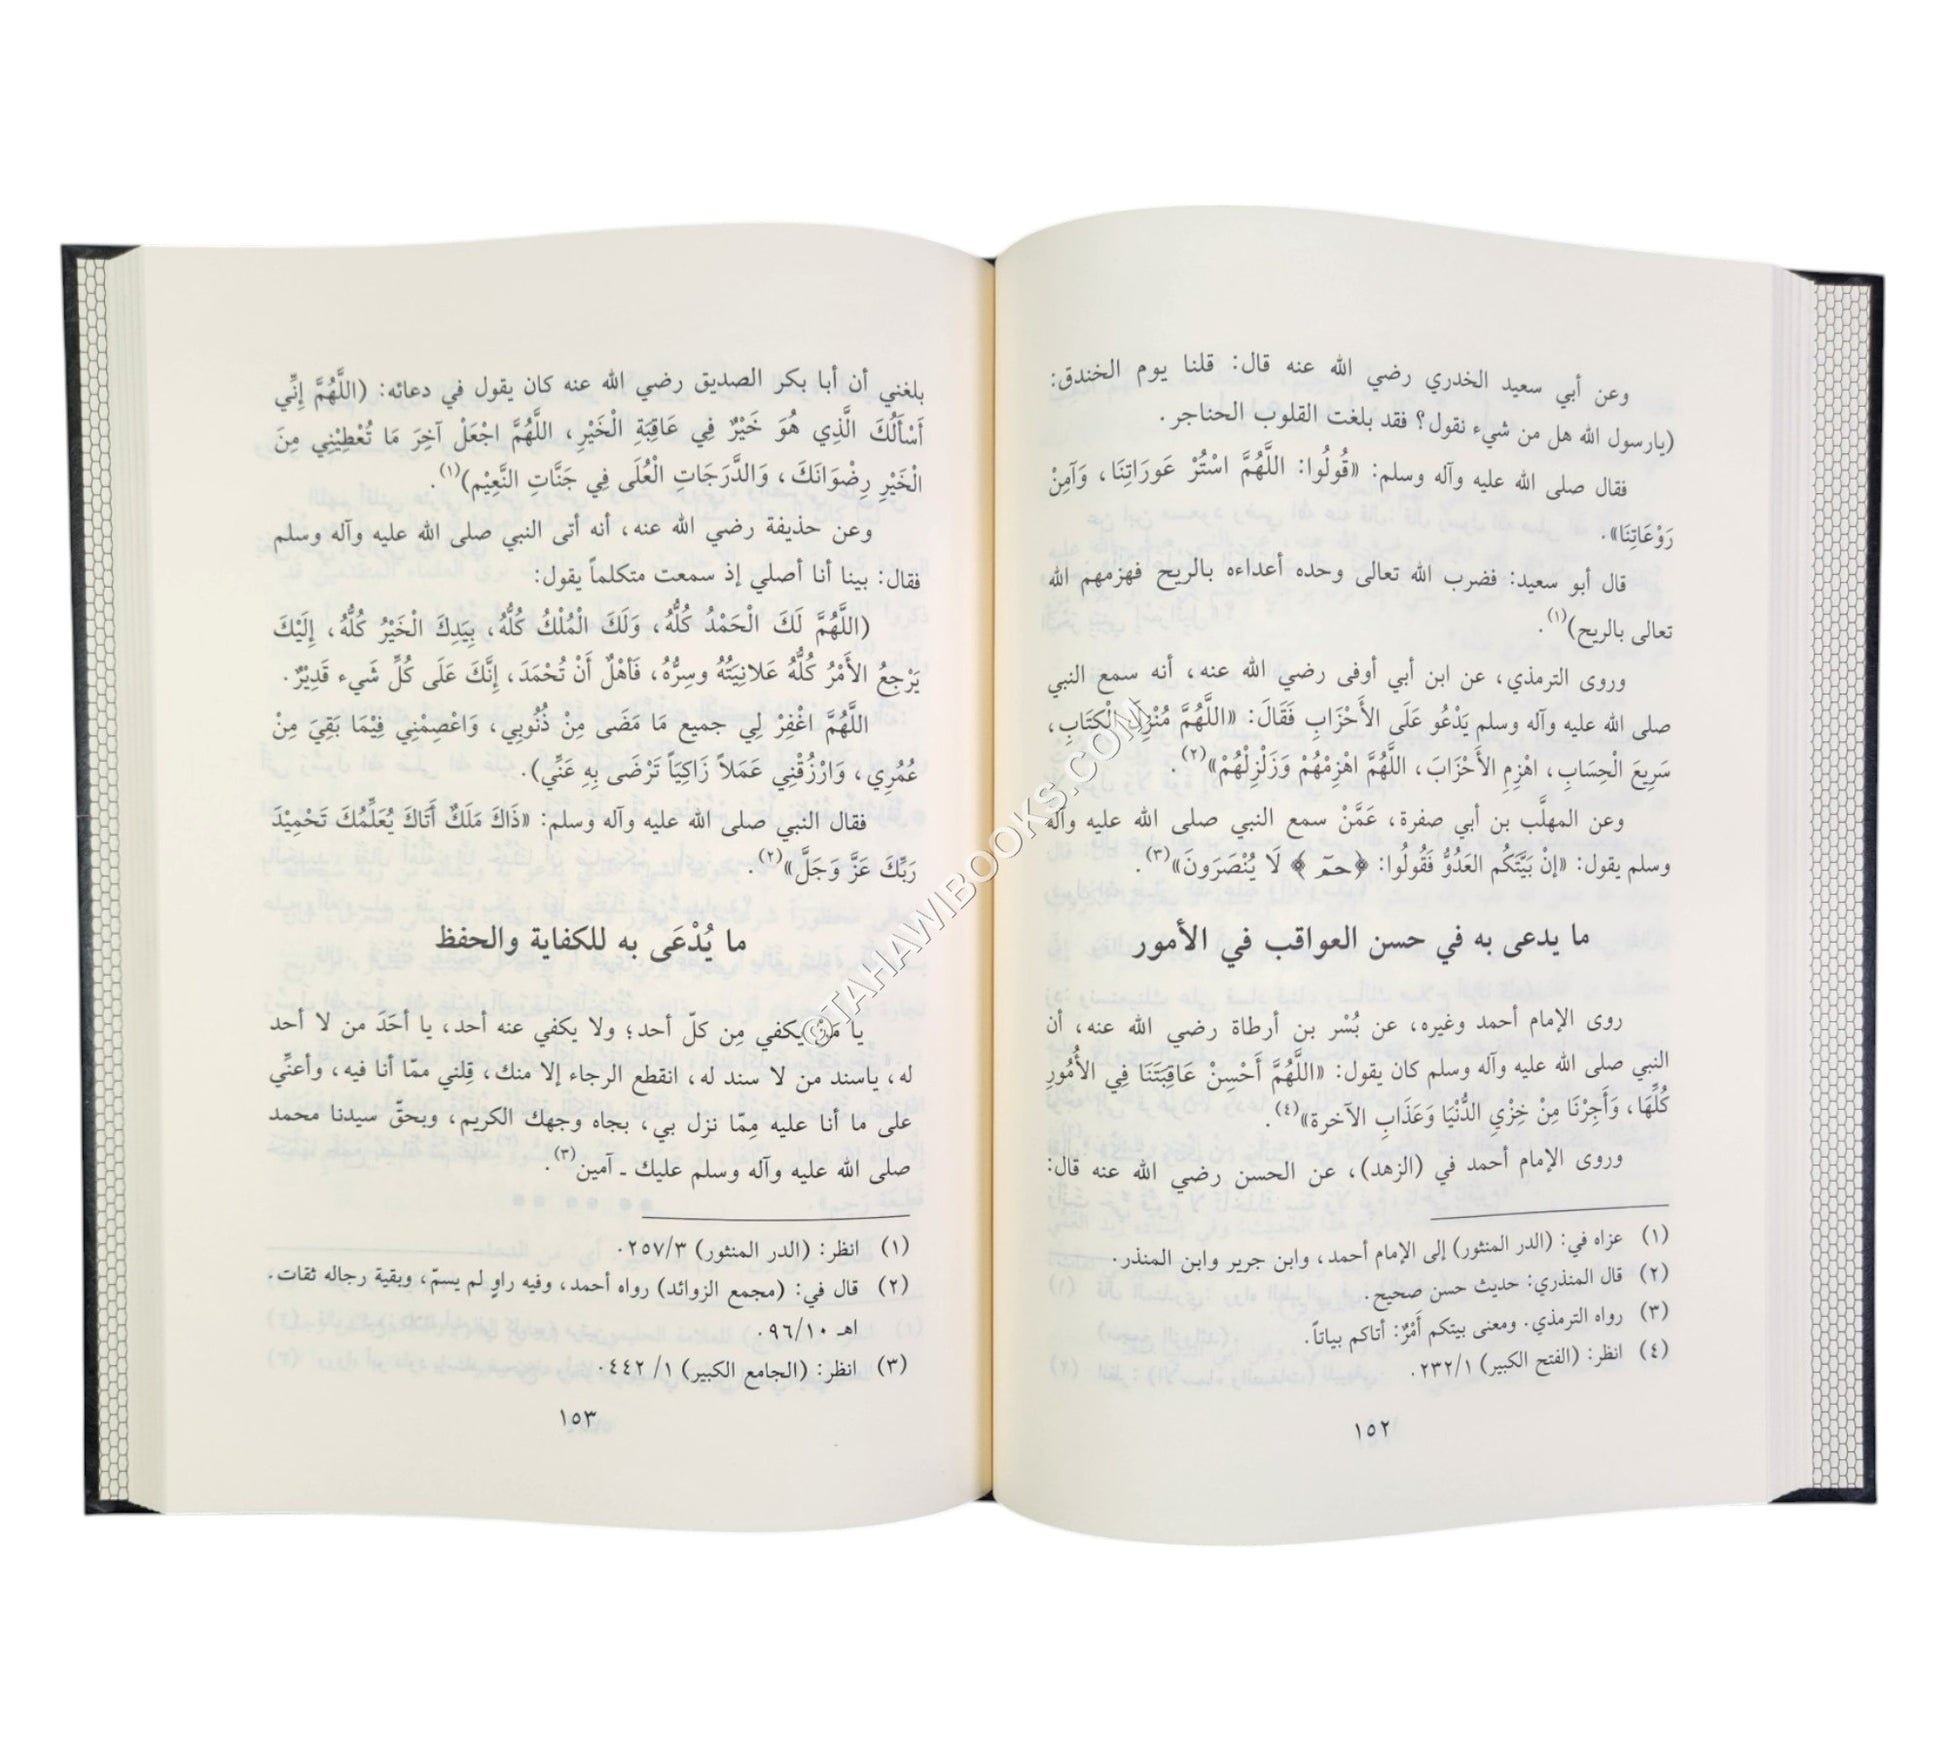 وعن أبي سعيد الخدري رضي الله عنه قال: قلنا يوم الخندق:
(يارسول الله هل من شيء نقول؟ فقد بلغت القلوب الحناجر.
فقال صلى الله عليه وآله وسلم: «قُولُوا: اللَّهُمَّ اسْتُرْ عَورَاتِنَا، وَآمِنْ
رَوْعَاتِنَا».
قال أبو سعيد: فضرب الله تعالى وحده أعداءه بالريح فهزمهم الله
تعالى بالريح)(١).
وروى الترمذي، عن ابن أبي أوفى رضي الله عنه، أنه سمع النبي
صلى الله عليه وآله وسلم يَدْعُو عَلَى الأَحْزَابِ فَقَالَ: «اللَّهُمَّ مُنْزِلَ الْكِتَابِ،
سَرِيعَ الْحِسَابِ، اهْزِمِ الأَحْزَابَ، اللَّهُمَّ اهْزِمْهُمْ وَزَلْزِلْهُمْ»(٢).
وعن المهلَّب بن أبي صفرة، عَمَّنْ سمع النبي صلى الله عليه وآله
وسلم يقول: «إنْ بَيَّتَكُم العَدُوُّ فَقُولُوا: ﴿حمٓ﴾ لَا يُنْصَرَونَ»(٣).
ما يدعى به في حسن العواقب في الأمور
روى الإمام أحمد وغيره، عن بُسْر بن أرطاة رضي الله عنه، أن
النبي صلى الله عليه وآله وسلم كان يقول: «اللَّهُمَّ أَحْسِنْ عَاقِبَتَنَا فِي الأُمُورِ
كُلِّهَا، وَأَجِرْنَا مِنْ خِزْيِ الدُّنْيَا وَعَذَابِ الآخرة»(٤).
وروى الإمام أحمد في (الزهد)، عن الحسن رضي الله عنه قال:
(١) عزاه في: (الدر المنثور) إلى الإمام أحمد، وابن جرير وابن المنذر.
(٢) قال المنذري: حديث حسن صحيح.
(٣) رواه الترمذي. ومعنى بيتكم أَمْرٌ: أتاكم بياتاً.
(٤) انظر: (الفتح الكبير) ٢٣٢/١.
١٥٢
بلغني أن أبا بكر الصديق رضي الله عنه كان يقول في دعائه: (اللَّهُمَّ إنِّي
أَسْأَلُكَ الَّذِي هُوَ خَيْرٌ فِي عَاقِبَةِ الْخَيْرِ، اللَّهُمَّ اجْعَلْ آخِرَ مَا تُعْطِيْنِي مِنَ
الْخَيْرِ رِضْوَانَكَ، وَالدَّرَجَاتِ الْعُلَى فِي جَنَّاتِ النَّعِيْم)(١).
وعن حذيفة رضي الله عنه، أنه أتى النبي صلى الله عليه وآله وسلم
فقال: بينا أنا أصلي إذ سمعت متكلماً يقول:
(اللَّهُمَّ لَكَ الْحَمْدُ كُلُّهُ، وَلَكَ الْمُلْكُ كُلُّهُ، بِيَدِكَ الْخَيْرُ كُلُّهُ، إِلَيْكَ
يَرْجِعُ الأَمْرُ كُلُّهُ عَلانِيَتُهُ وسِرُّهُ، فَأهْلٌ أَنْ تُحْمَدَ، إِنَّكَ عَلَى كُلِّ شَيء قَدِيْرٌ.
اللَّهُمَّ اغْفِرْ لِي جميع مَا مَضَى مِنْ ذُنُوبِي، وَاعْصِمْنِي فِيْمَا بَقِيَ مِنْ
عُمُرِي، وَارْزُقْنِي عَمَلاً زَاكِيَاً تَرْضَى بِهِ عَنِّي).
فقال النبي صلى الله عليه وآله وسلم: «ذَاكَ مَلَكٌ أَتَاكَ يُعَلِّمُكَ تَحْمِيْدَ
رَبِّكَ عَزَّ وَجَلَّ»(٢).
ما يُدْعَى به للكفاية والحفظ
يا مَنْ يكفي مِن كلّ أحد؛ ولا يكفي عنه أحد، يا أحَدَ من لا أحد
له، ياسند من لا سند له، انقطع الرجاء إلا منك، قِلني ممّا أنا فيه، وأعنِّي
على ما أنا عليه مِمّا نزل بي، بجاه وجهك الكريم، وبحقّ سيدنا محمد
صلى الله عليه وآله وسلم عليك ـ آمين(٣).
(١) انظر: (الدر المنثور) ٢٥٧/٣.
(٢) قال في: (مجمع الزوائد) رواه أحمد، وفيه راوٍ لم يسمّ، وبقية رجاله ثقات.
اهـ ٩٦/١٠.
(٣) انظر: (الجامع الكبير) ١/ ٤٤٢.
١٥٣
©TAHAWIBOOKS.COM